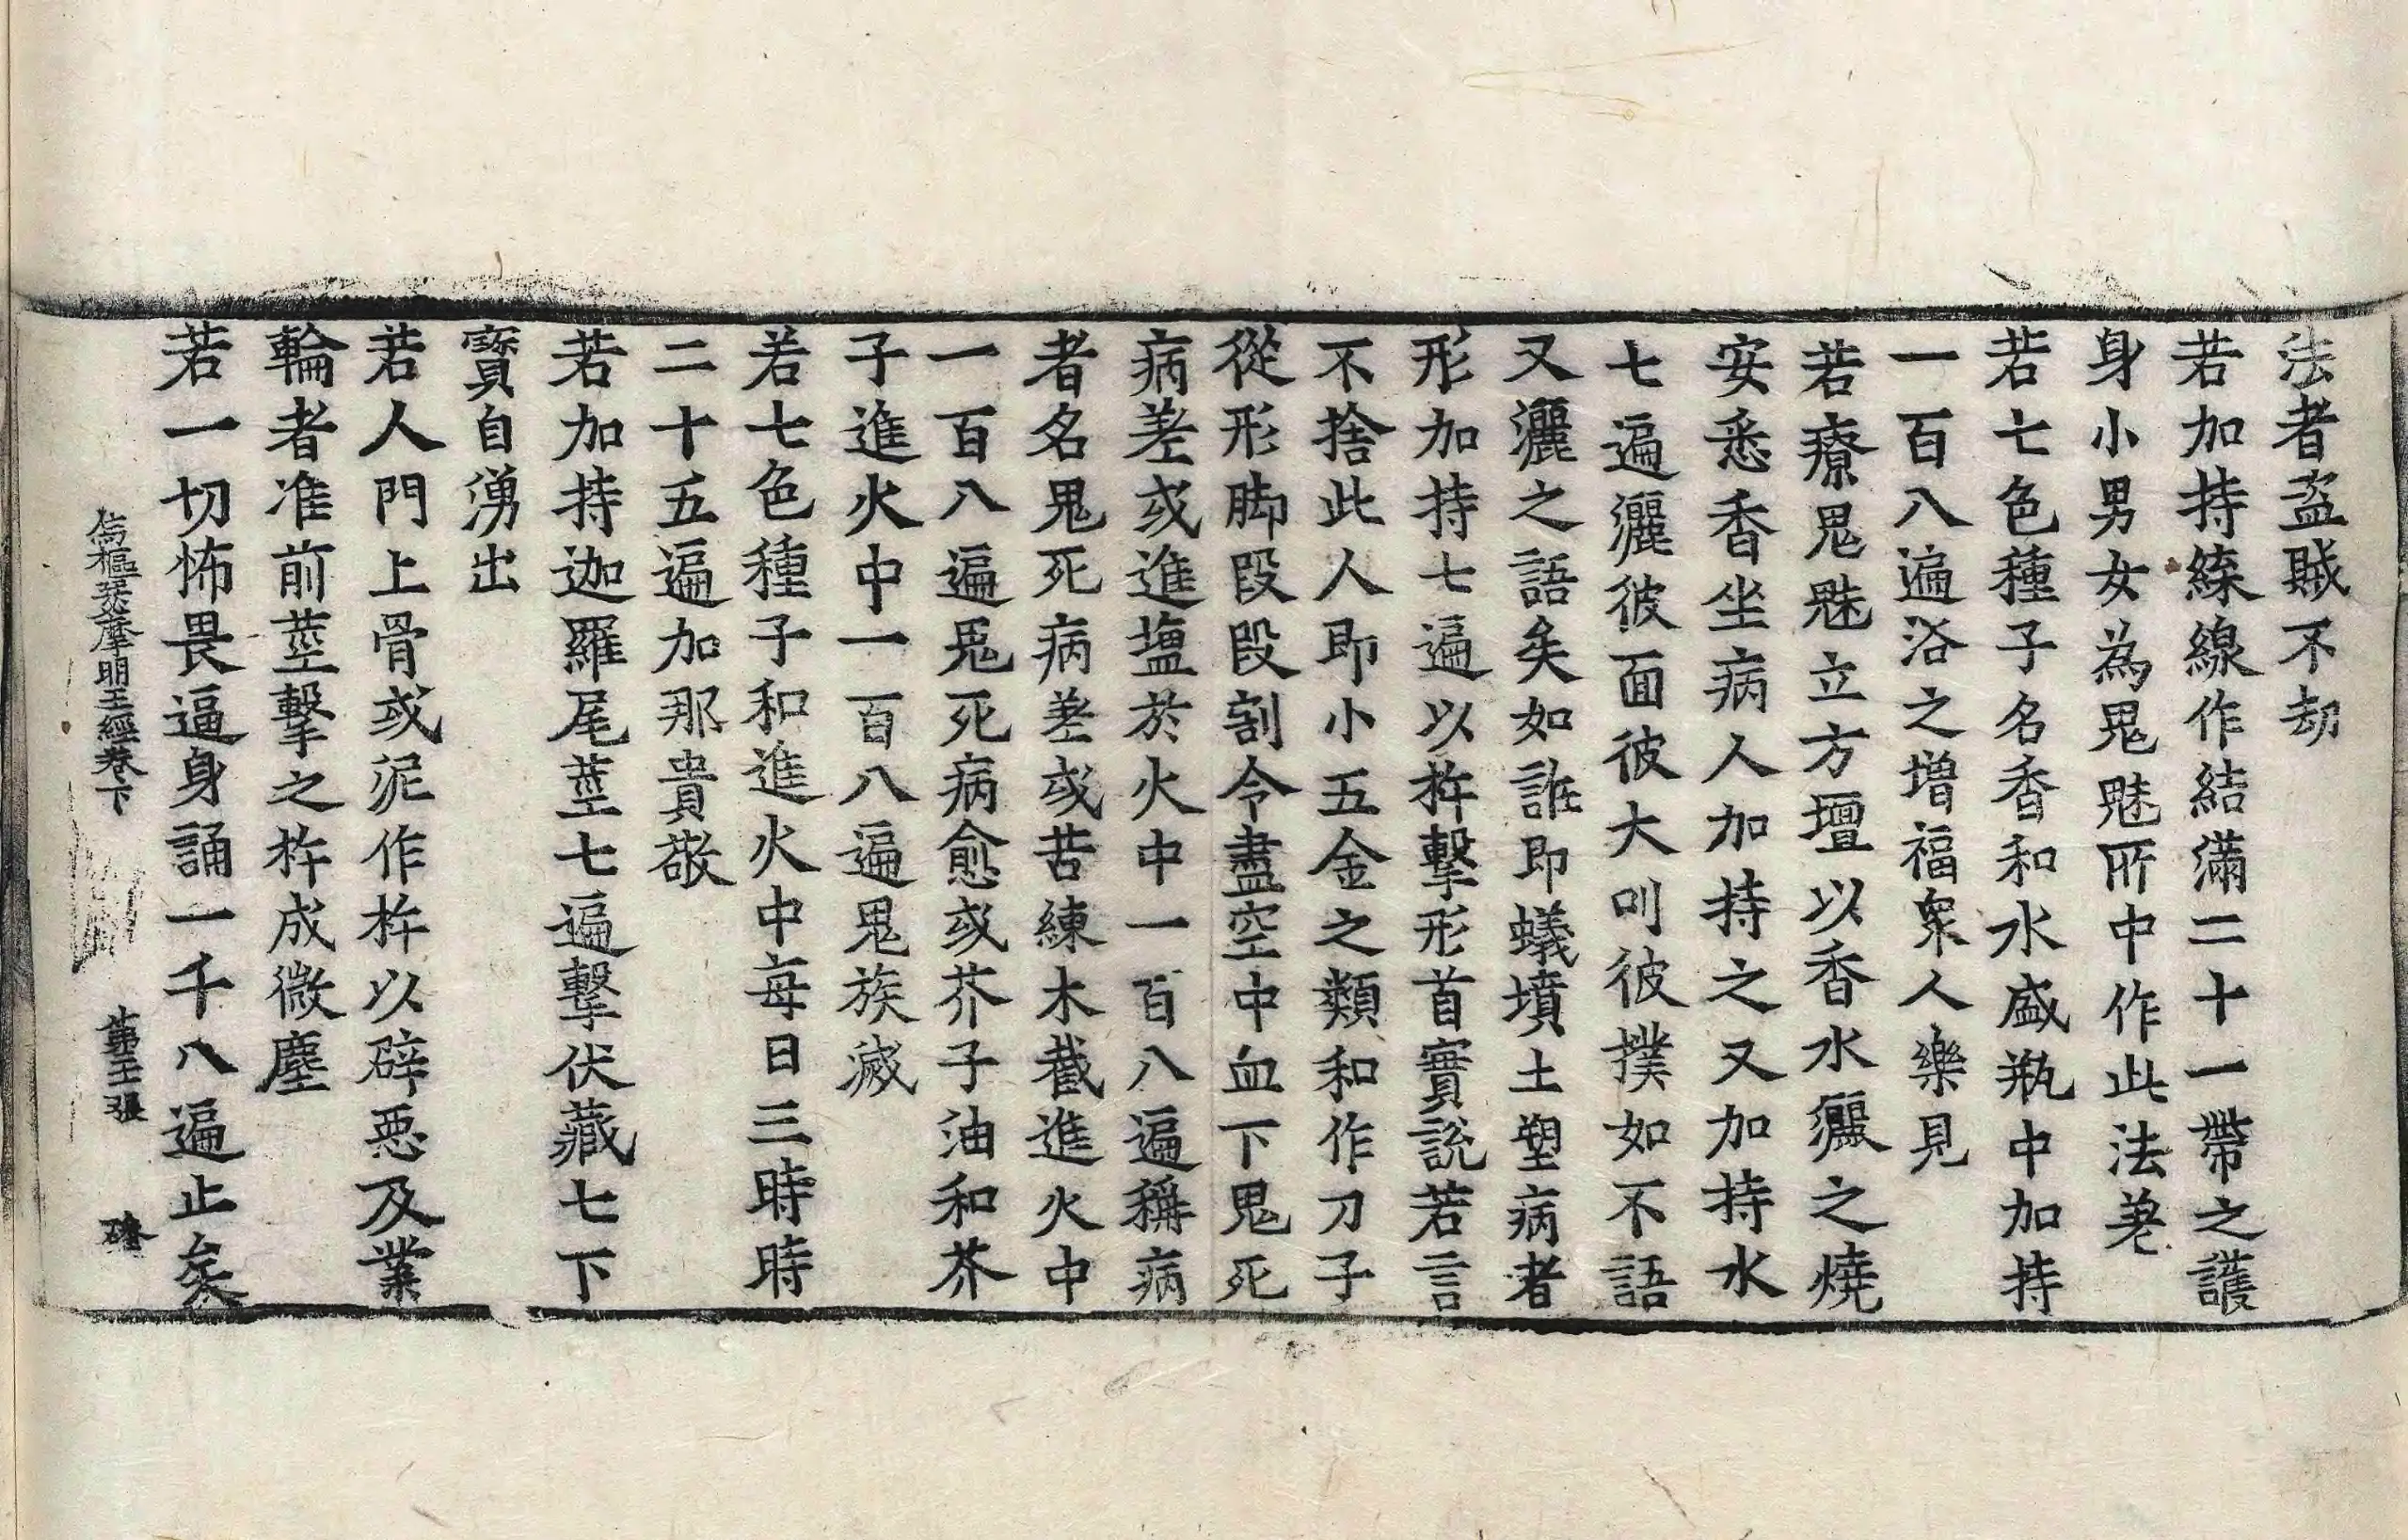 法者盗賊不劫
若加持綵線作結滿二十一帶之護
身小男女為鬼魅所中作此法差
若七色種子名香和水盛瓶中加持
一百八遍浴之增福衆人樂見
若療鬼魅立方壇以香水灑之燒
安悉香坐病人加持之又加持水
七遍灑彼面彼大叫彼撲如不語
又灑之語矣如誰即蟻墳土塑病者
形加持七遍以杵擊形首實說若言
不捨此人即小五金之類和作刀子
從形脚段段割令盡空中血下鬼死
病差或進塩於火中一百八遍稱病
者名鬼死病差或苦練木截進火中
一百八遍鬼死病愈或芥子油和芥
子進火中一百八遍鬼族滅
若七色種子和進火中每日三時時
二十五遍加那貴敬
若加持迦羅尾莖七遍擊伏藏七下
寶自湧出
若人門上骨或泥作杵以辟惡及業
輪者准前莖擊之杵成微塵
若一切怖畏逼身誦一千八遍止矣
樞瑟摩明王經卷下 第王張 磻